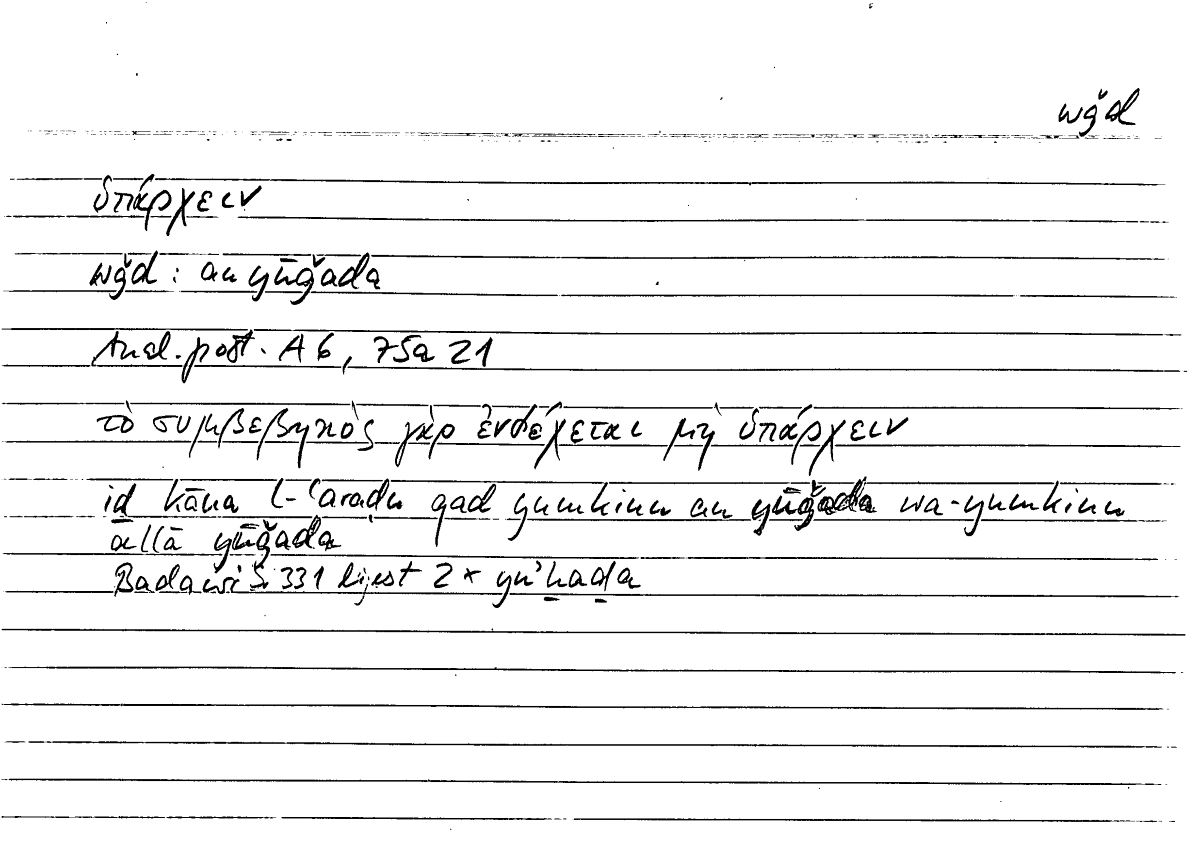 wǧd
ὑπάρχειν
wǧd : an yūǧada
Anal. post. A 6, 75a 21
τὸ συμβεβηκὸς γὰρ ἐνδέχεται μὴ ὑπάρχειν
iḏ kāna l-ʿaraḍu qad yumkinu an yūǧada wa-yumkinu
allā yūǧada
Badawi S. 331 liest 2 × yuʾḫaḏa